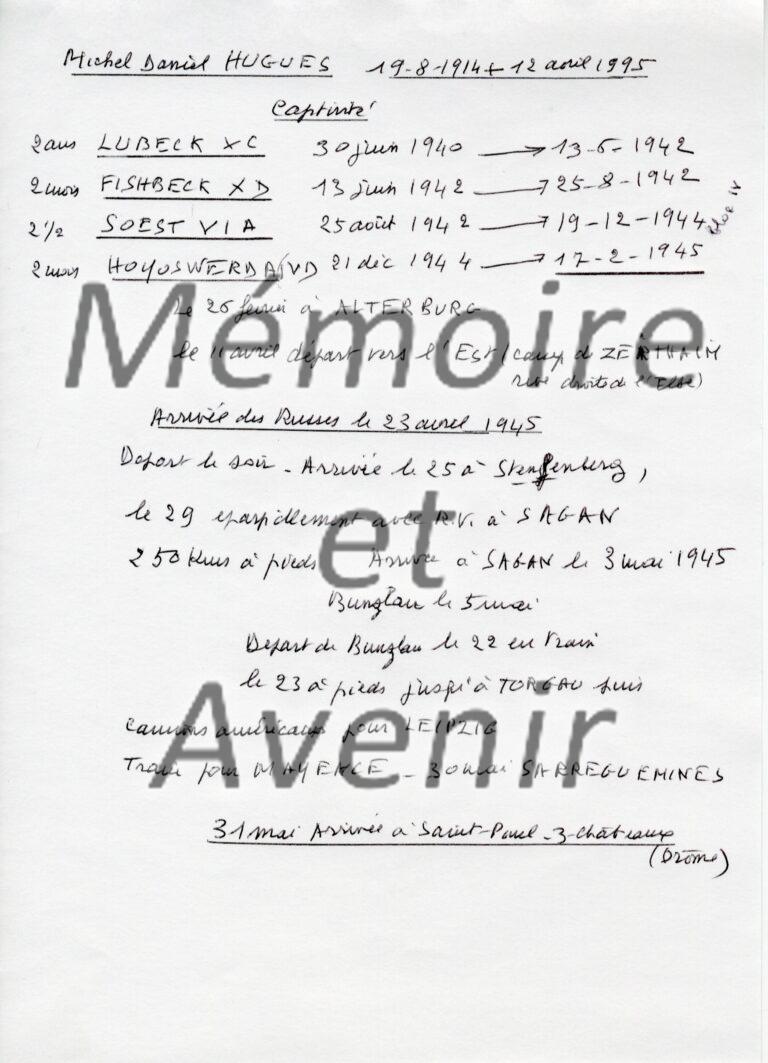 Michel Daniel HUGUES 19-8-1914 + 12 avril 1995
Captivité
2 ans LUBECK XC 30 juin 1940 → 13-6-1942
2 mois FISHBECK XD 13 juin 1942 → 25-8-1942
2 1/2 SOEST VIA 25 août 1942 → 19-12-1944
2 mois HOYOSWERDA IVD 21 déc 1944 → 17-2-1945
le 26 février à ALTERBURG
le 11 avril départ vers l'Est (camp de ZERTHAIM
rive droite de l'Elbe)
Arrivée des Russes le 23 avril 1945
Depart le soir - Arrivée le 25 à
le 29 eparpillement avec R.V. à SAGAN
250 Kms à pieds Arrivée à SAGAN le 3 mai 1945
Bunzlau le 5 mai
Depart de Bunzlau le 22 en train
le 23 à pieds jusqu'à TORGAU puis
Camions américains pour LEIPZIG
Train pour MAYENCE - 30 mai SARREGUEMINES
31 mai Arrivée à Saint-Paul-3-châteaux
(Drôme)
Mémoire
et
Avenir